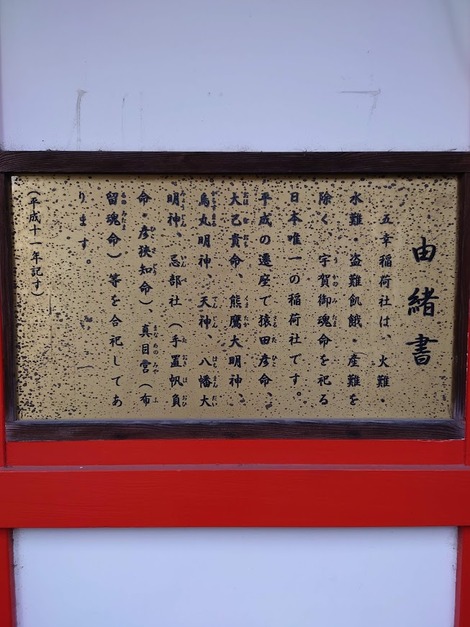 由緒書
五幸稲荷社は、火難・
水難・盗難飢餓・産難を
除く　宇賀御魂命を祀る
日本唯一の稲荷社です。
平成の遷座で猿田彦命、
大己貴命、熊鷹大明神、
烏丸明神、天神、八幡大
明神、忌部社（手置帆負
命・彦狭知命）、真目宮（布
留魂命）等を合祀してあ
ります。
（平成十一年記す）